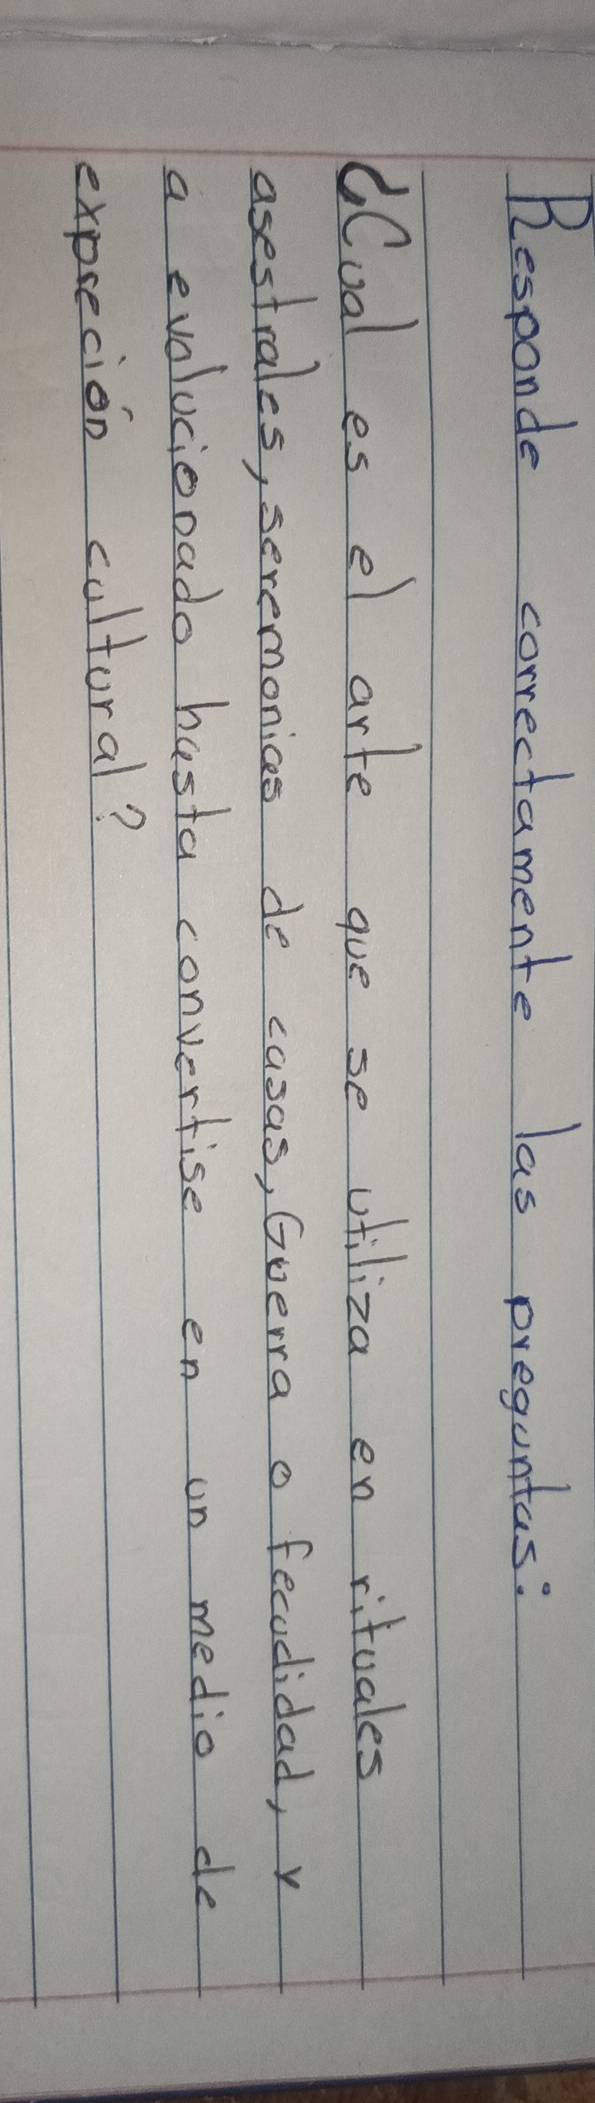 Responde correctamente las preguntas:
¿Cual es el arte que se utiliza en rituales
asestrales, seremonias de casas, Guerra o fecudidad, y
a evolucionado hasta convertise en un medio de
expreción cultural?